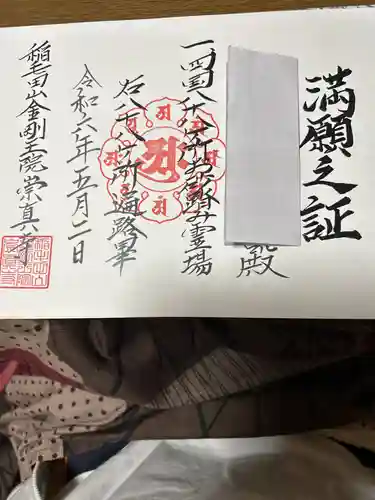 満願之証
殿
一、四国八十八ヶ所お砂踏み霊場
右八十八ヶ所遍路畢
令和六年五月二日
稲荷山金剛王院崇真寺